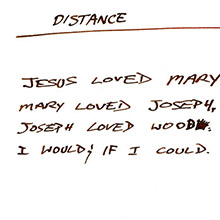 DISTANCE
JESUS LOVED MARY
MARY LOVED JOSEPH,
JOSEPH LOVED WOOD.
I WOULD; IF I COULD.